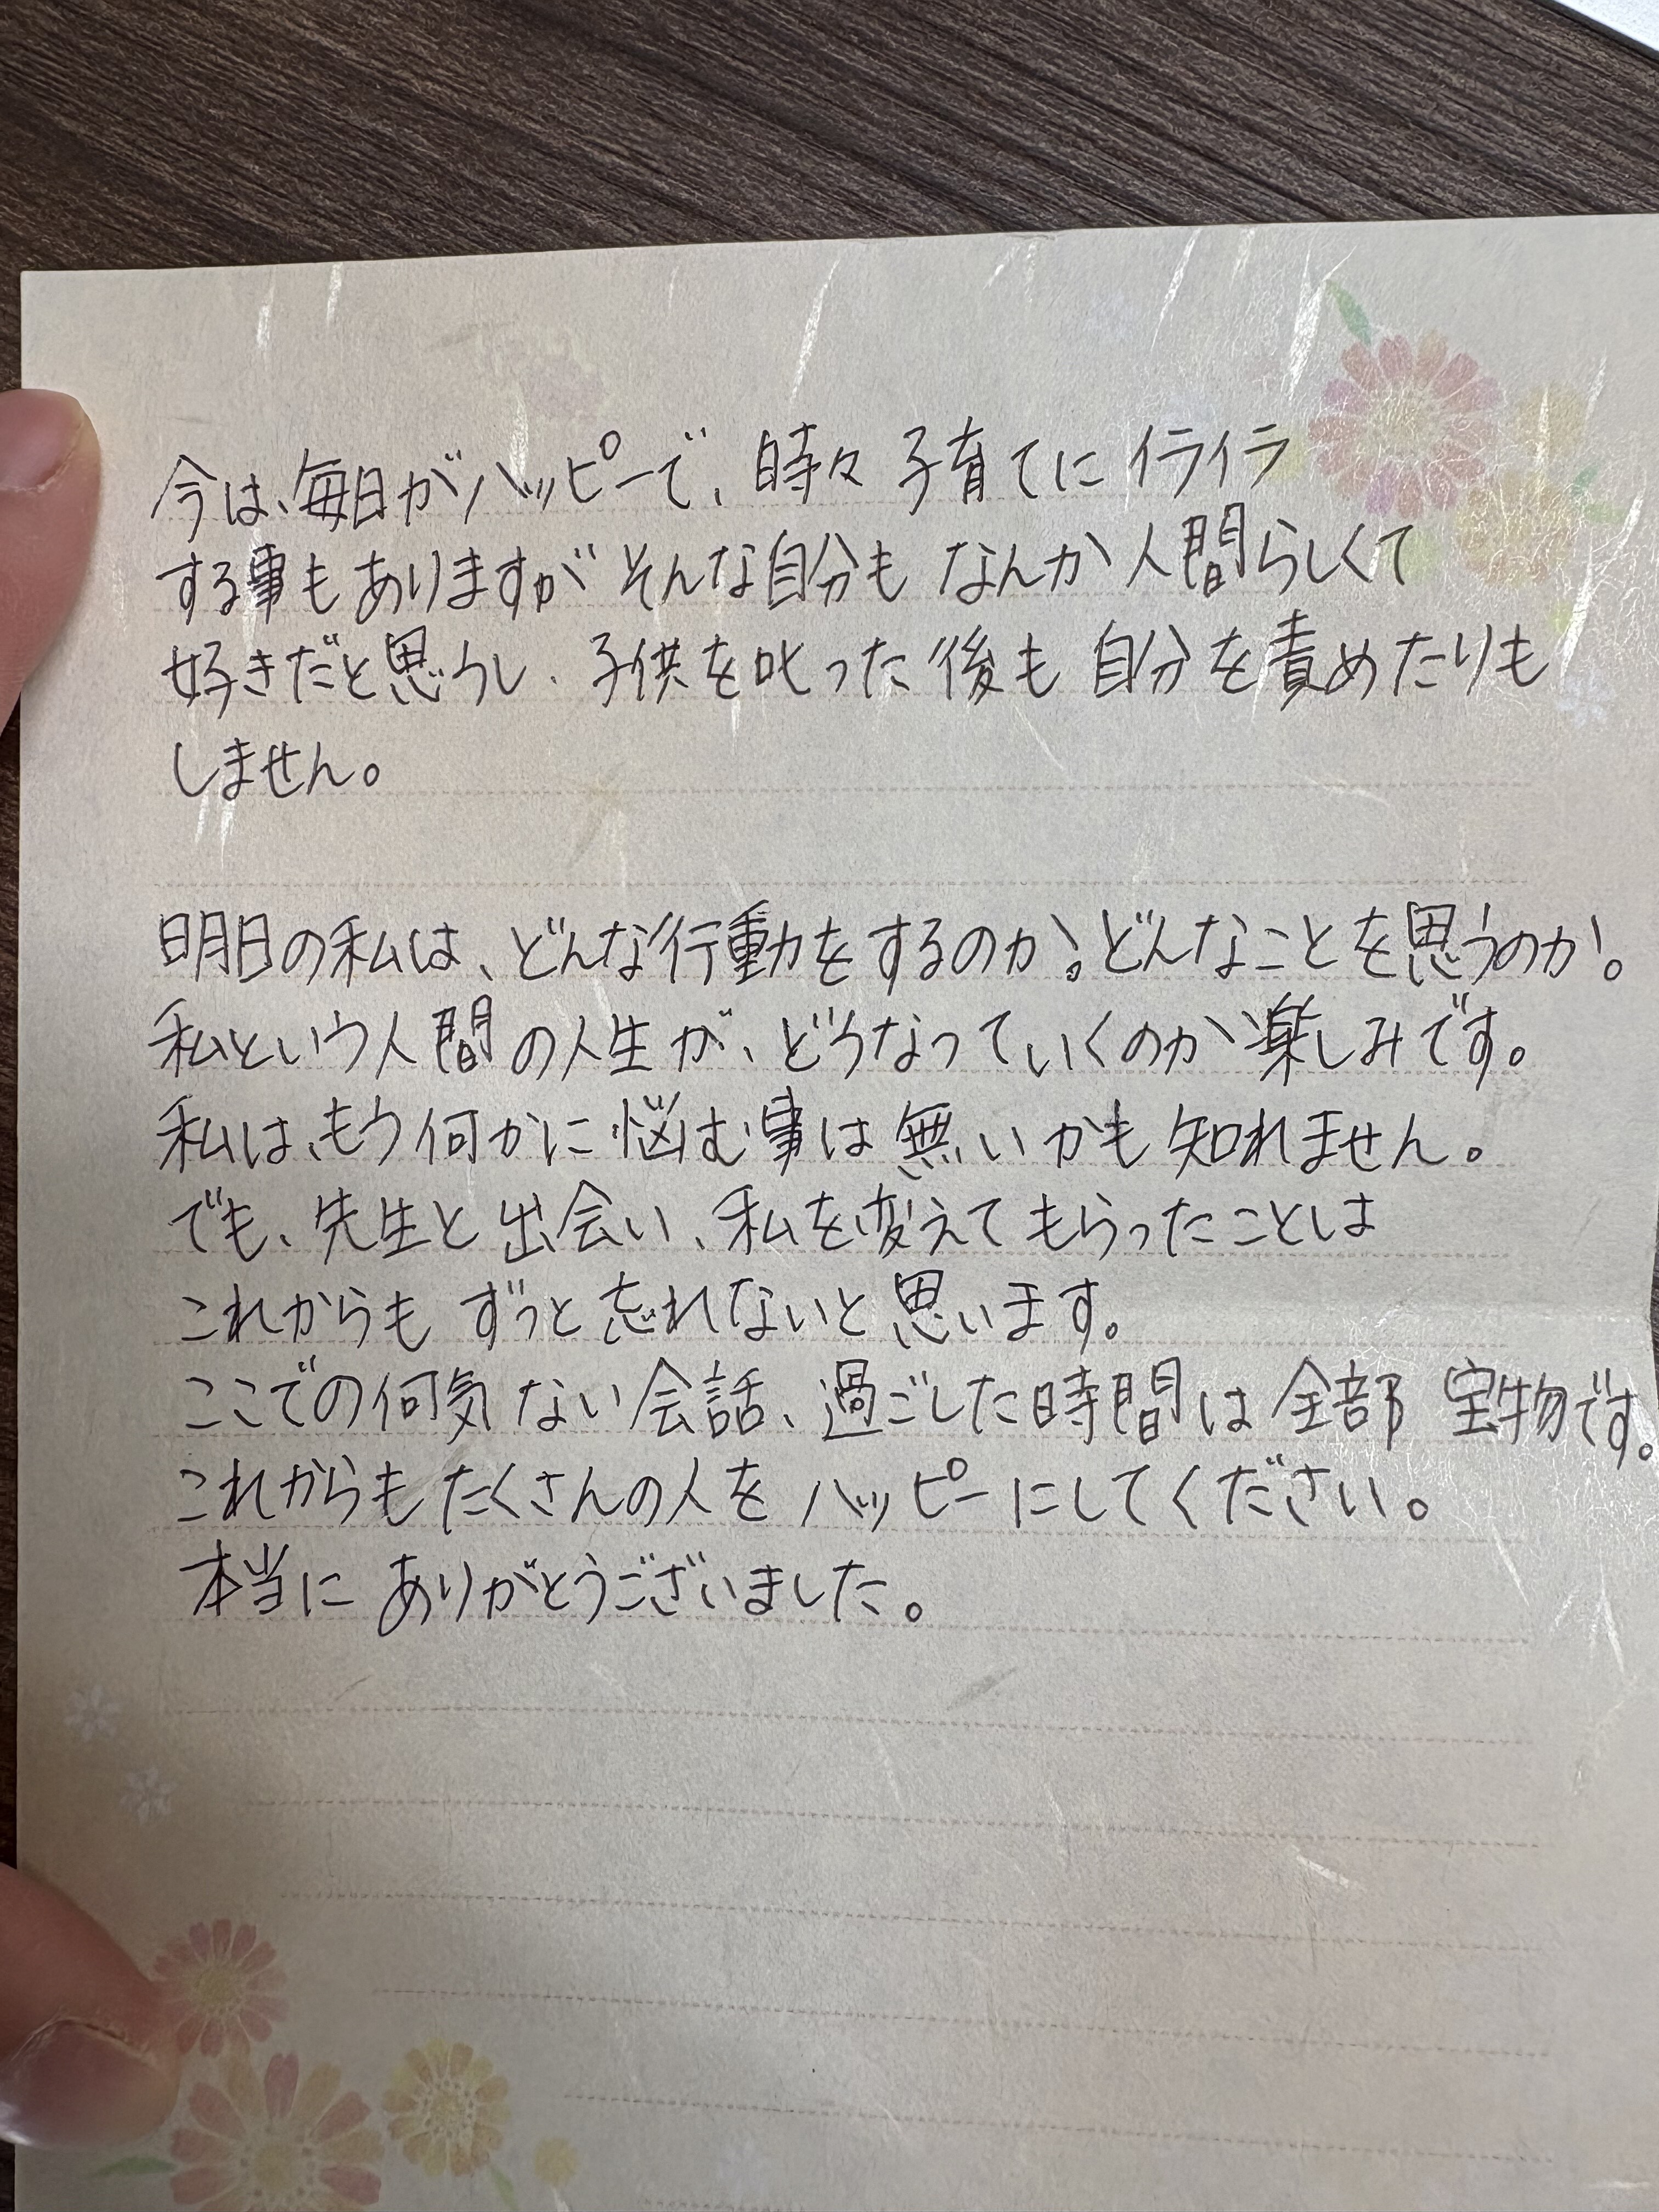 今は、毎日がハッピーで、時々子育てにイライラ
する事もありますが そんな自分も なんか人間らしくて
好きだと思うし、子供を叱った後も 自分を責めたりも
しません。
明日の私は、どんな行動をするのか。どんなことを思うのか。
私という人間の人生が、どうなっていくのか楽しみです。
私は、もう何かに悩む事は無いかも知れません。
でも、先生と出会い、私を変えてもらったことは
これからも ずっと忘れないと思います。
ここでの何気ない会話、過ごした時間は全部 宝物です。
これからもたくさんの人を ハッピーにしてください。
本当に ありがとうございました。